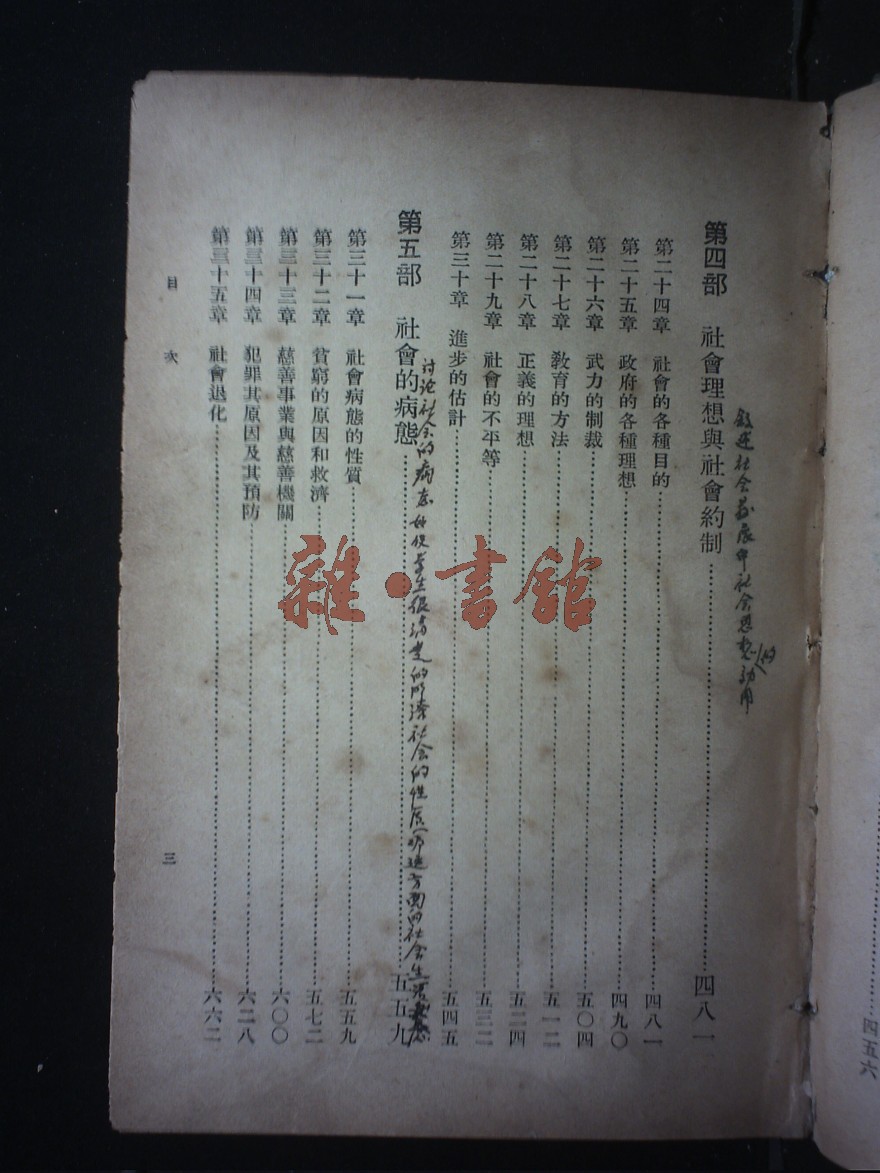 第四部 社會理想與社會約制……四八一
叙述社会发展中社会思想的功用
第二十四章 社會的各種目的……四八一
第二十五章 政府的各種理想……四九〇
第二十六章 武力的制裁……五〇四
第二十七章 敎育的方法……五一二
第二十八章 正義的理想……五二四
第二十九章 社會的不平等……五三二
第三十章 進步的估計……五四五
第五部 社會的病態……五五九
讨论社会的病态 学生很清楚的明瞭社会的性质 方面的社会生活
第三十一章 社會病態的性質……五五九
第三十二章 貧窮的原因和救濟……五七二
第三十三章 慈善事業與慈善機關……六〇〇
第三十四章 犯罪其原因及其預防……六二八
第三十五章 社會退化……六六二
目次
三
四五六
雜·書館